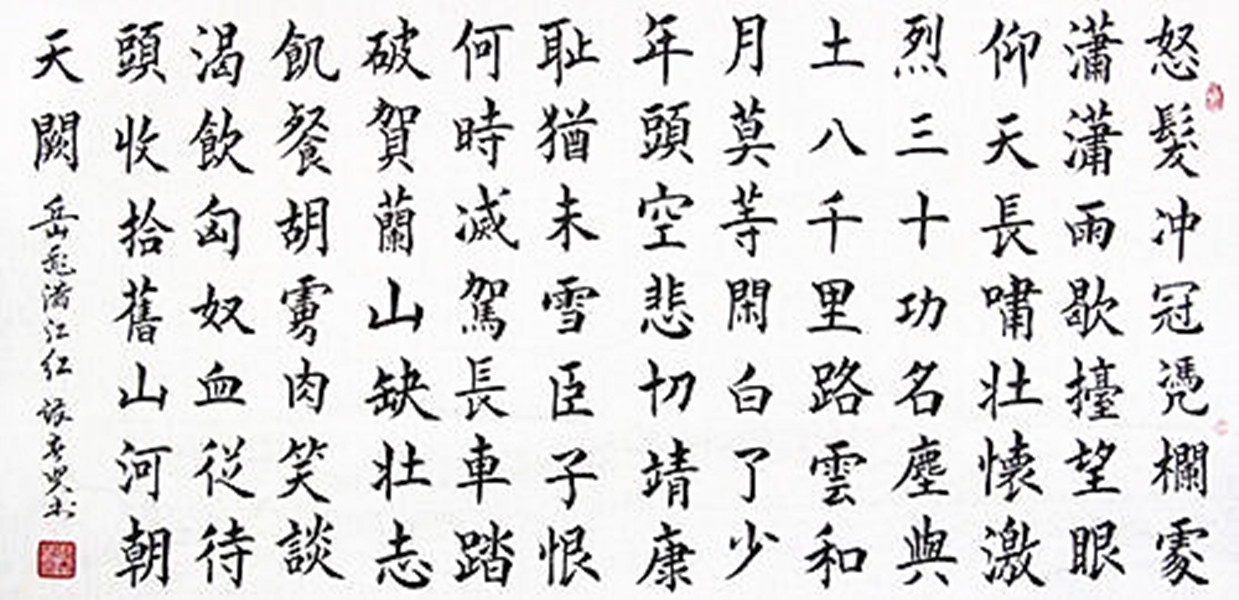 怒髮冲冠凴欄處
瀟瀟雨歇擡望眼
仰天長嘯壯懷激
烈三十功名塵與
土八千里路雲和
月莫等閑白了少
年頭空悲切靖康
耻猶未雪臣子恨
何時滅駕長車踏
破賀蘭山缺壯志
飢餐胡虜肉笑談
渴飲匈奴血從待
頭收拾舊山河朝
天闕
岳飛滿江紅 書